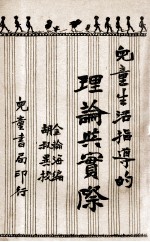 兒童生活指導的
理論與實際
金綸海編
胡叔異校
兒童書局印行